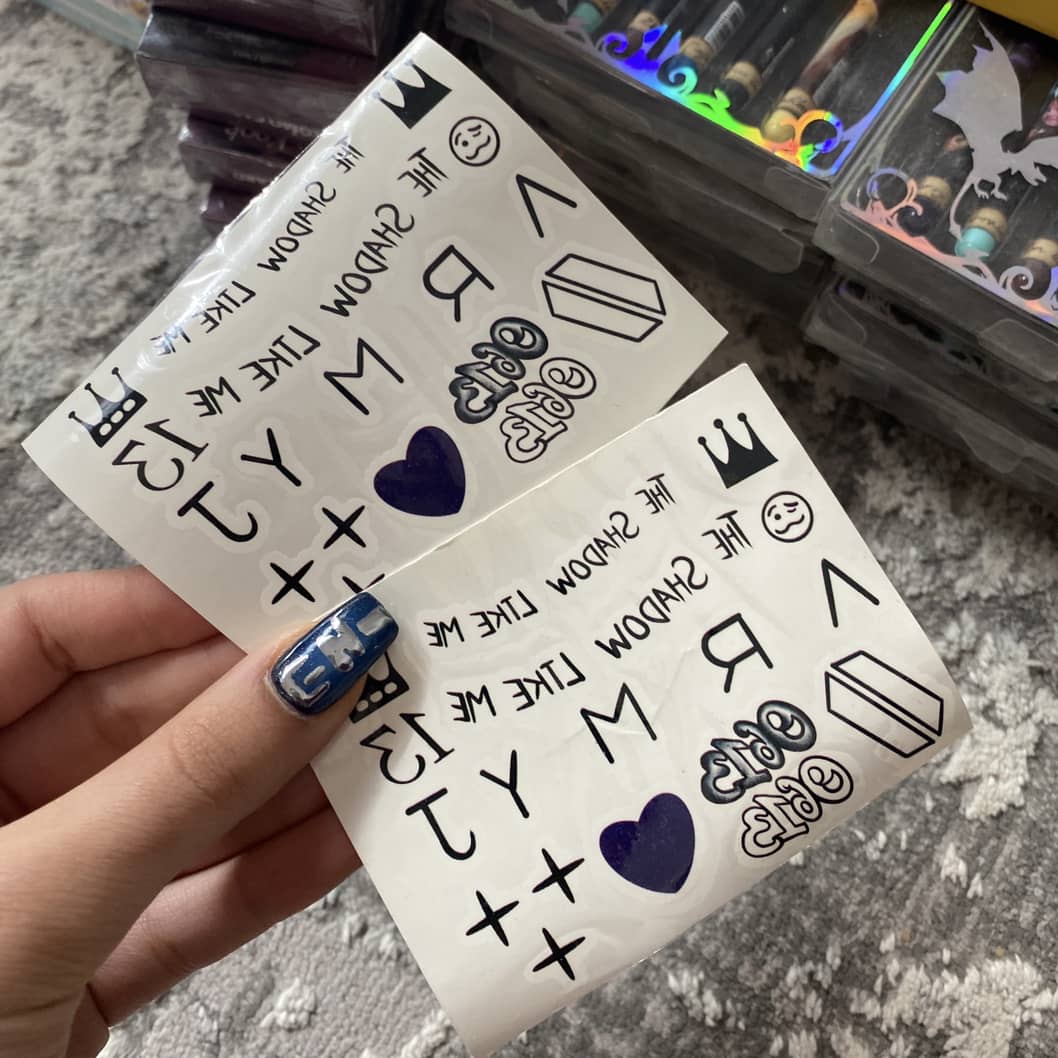 THE SHADOW LIKE ME
THE SHADOW LIKE ME
V
R
M
Y
13
J
THE SHADOW LIKE ME
THE SHADOW LIKE ME
V
R
M
Y
13
J